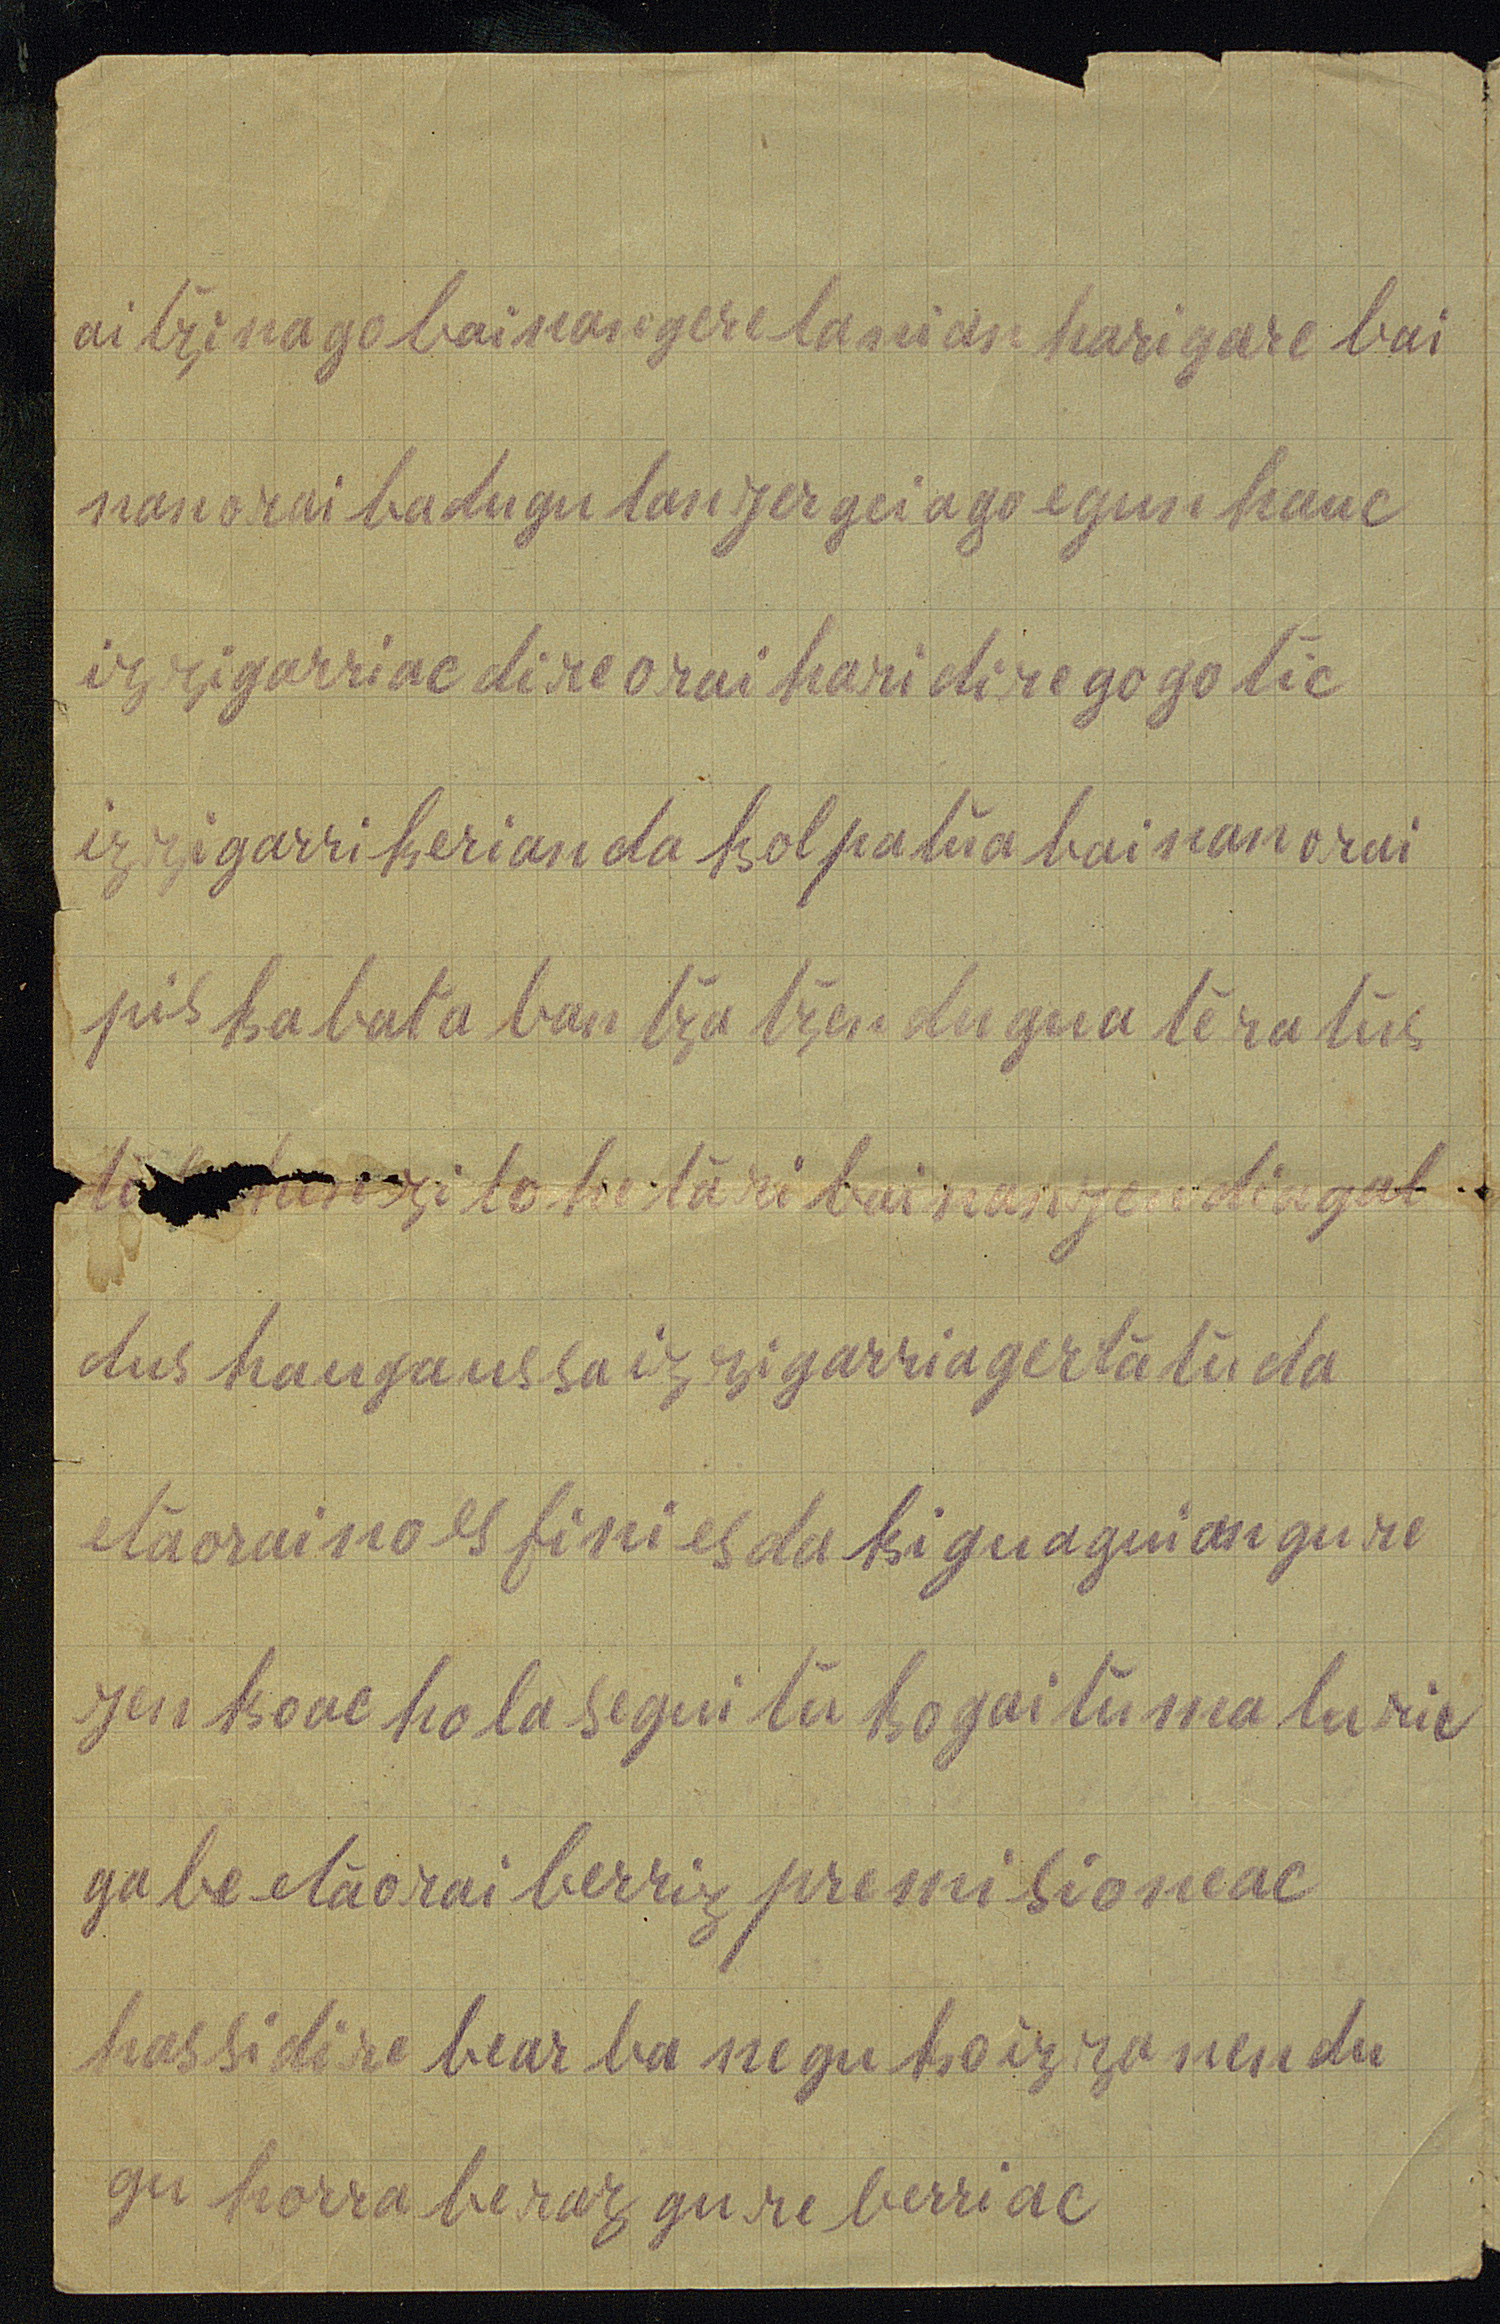 aitzinago bainangere lanian harigare bai
nan orai badugu lan zergeiago egun hauc
izzigarriac dire orai hari dire gogotic
izzigarri kerian da kolpatua bainan orai
piskabata bantzatzen dugu ateratus
zito hetari bainan zen dingal
dus hau gaussa izzigarria gertatu da
eta oraino es fini es da ki gu aguian gure
zenkoac hola seguituko gaitu ma luric
gabe eta orai berriz premisioneac
hassi dire bearba neguko izzanen du
gu horra beraz gure berriac